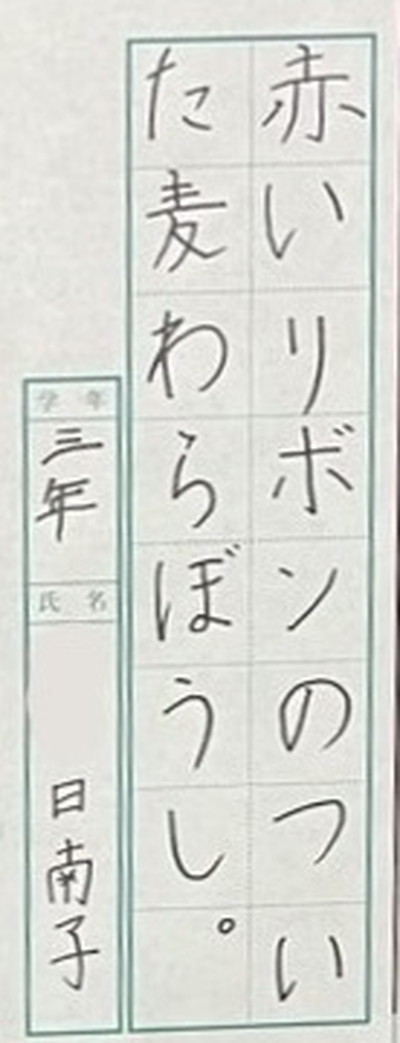 赤いリボンのつい
た麦わらぼうし。
学年
三年
氏名
日南子